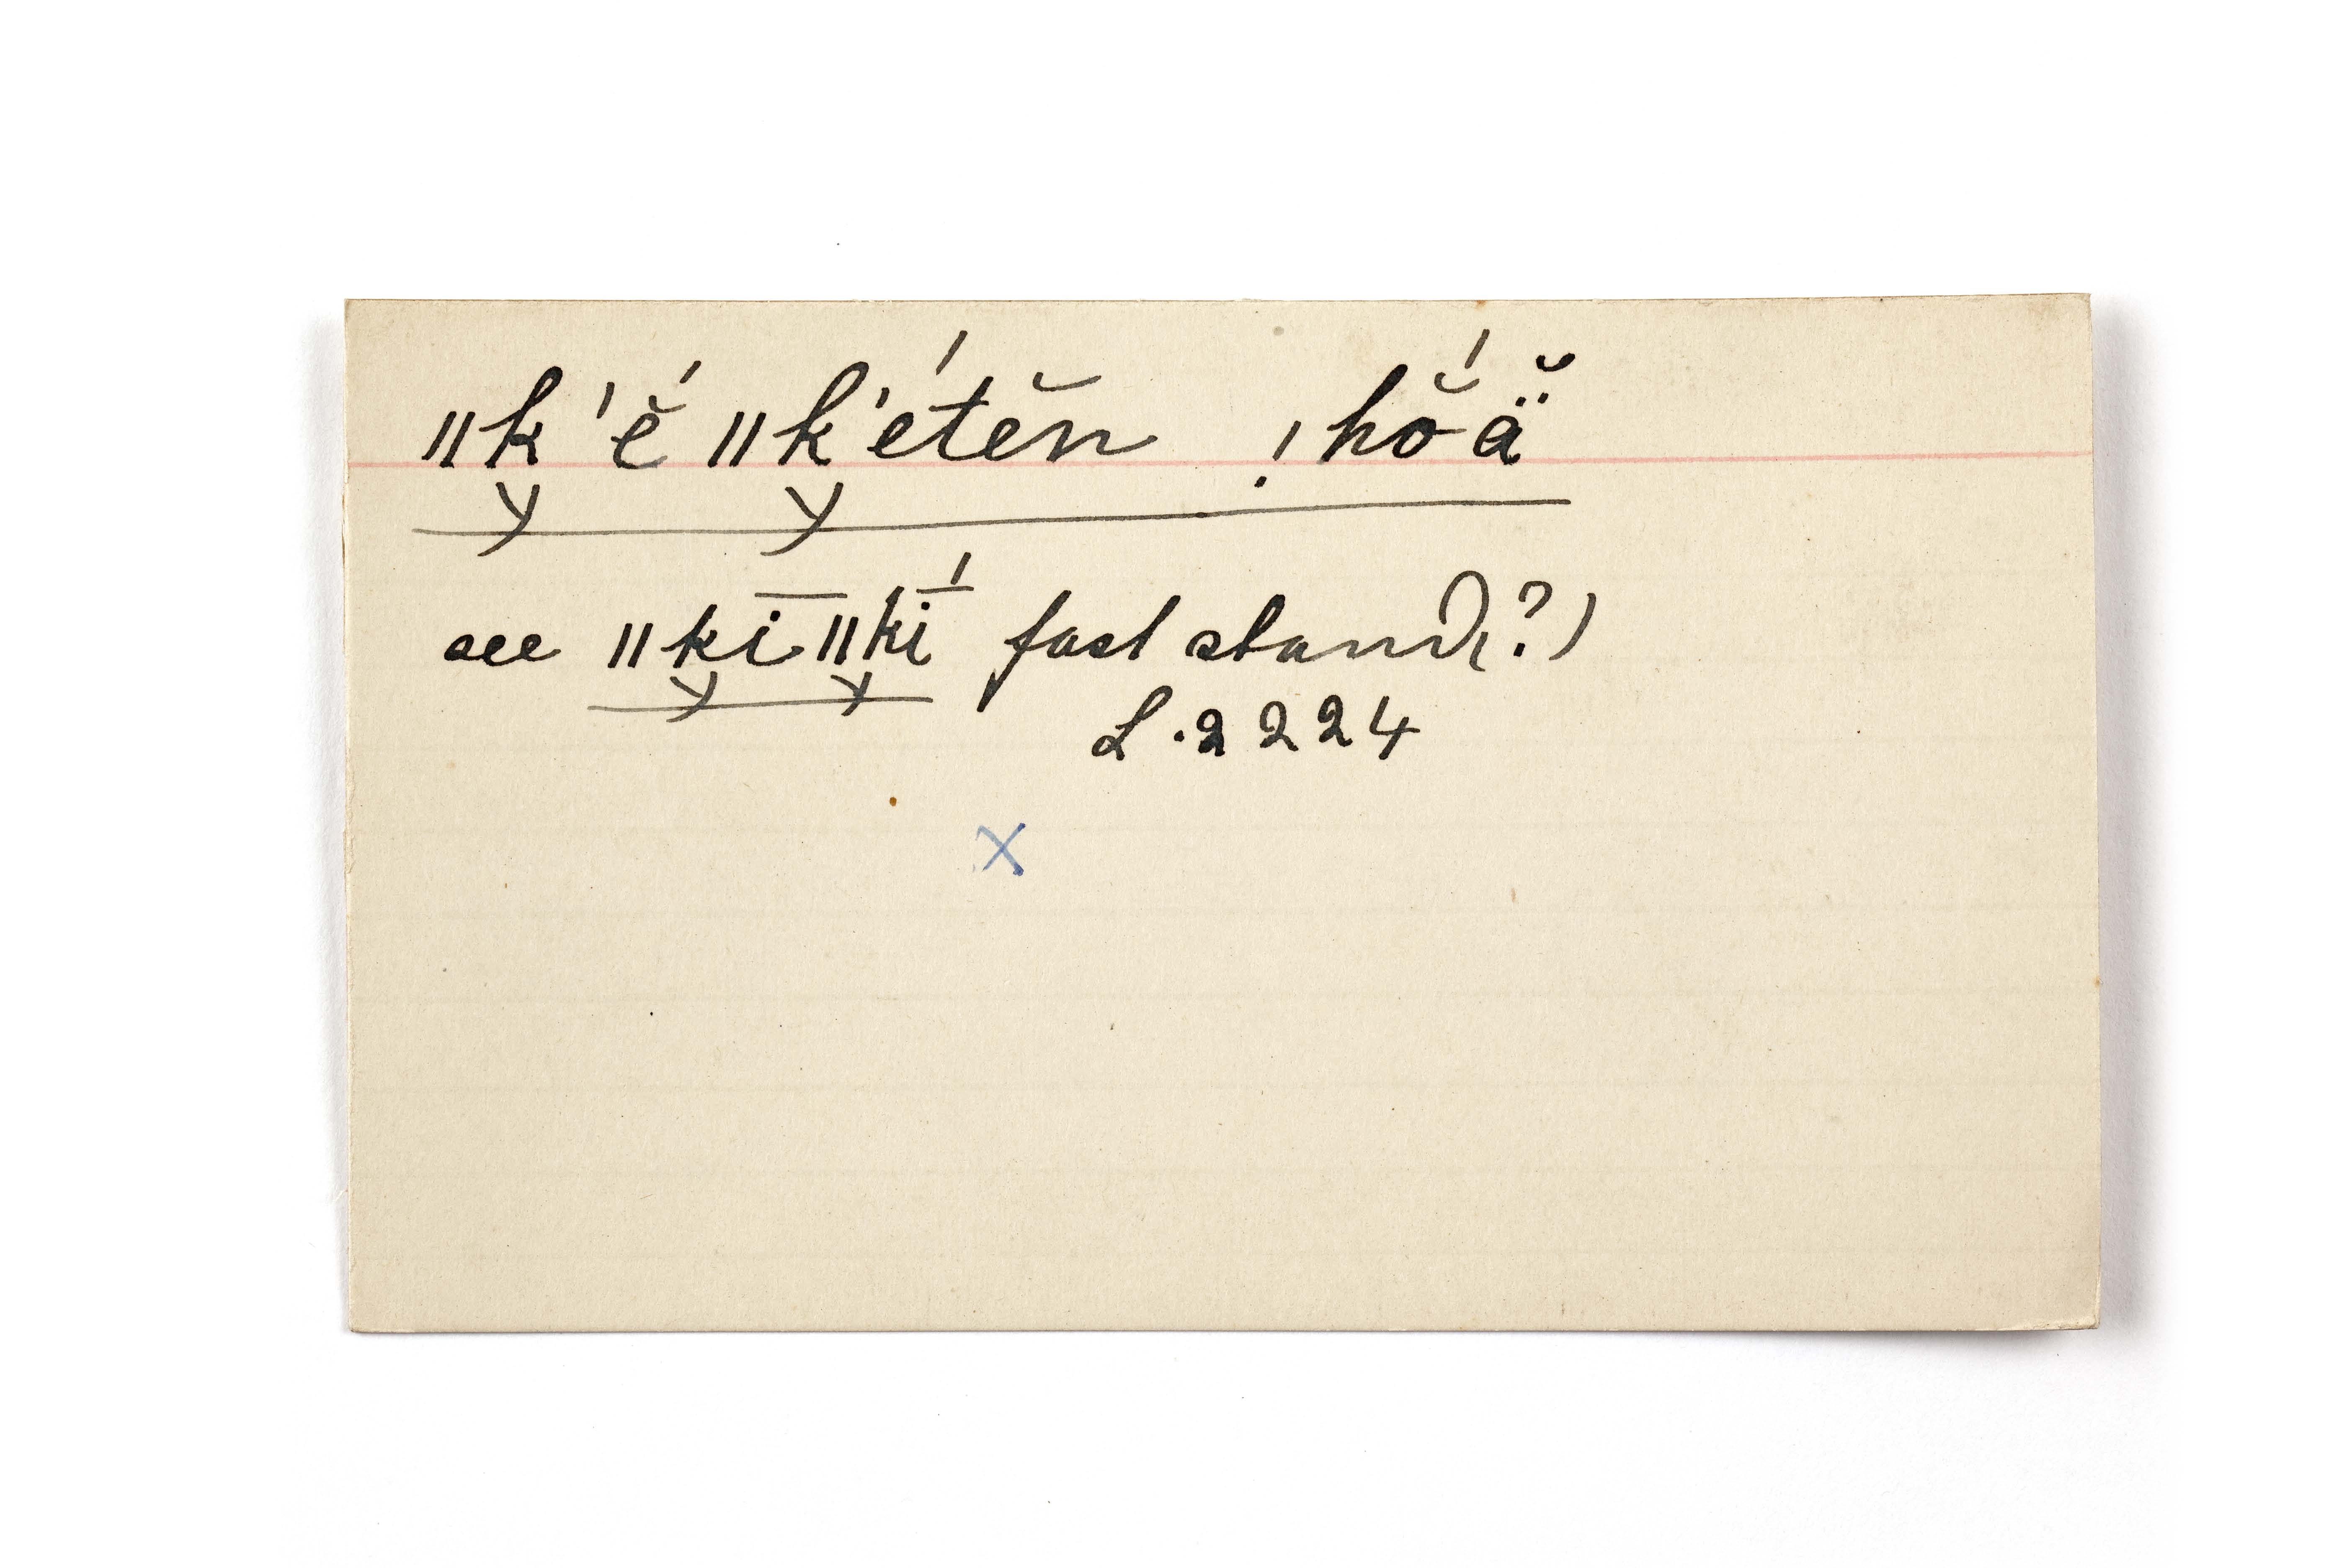 ǁk͓ʼĕ́ ǁk͓ʼétĕn !hŏ́ä̆
see ǁk͓īǁk͓ī́ fast stand(?)
L. 2224
X